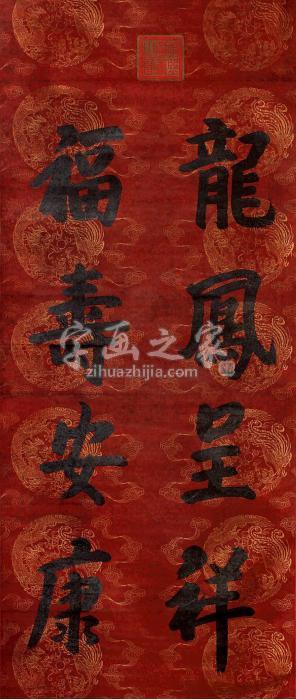 龍鳳呈祥
福壽安康
字画之家
zihuazhijia.com